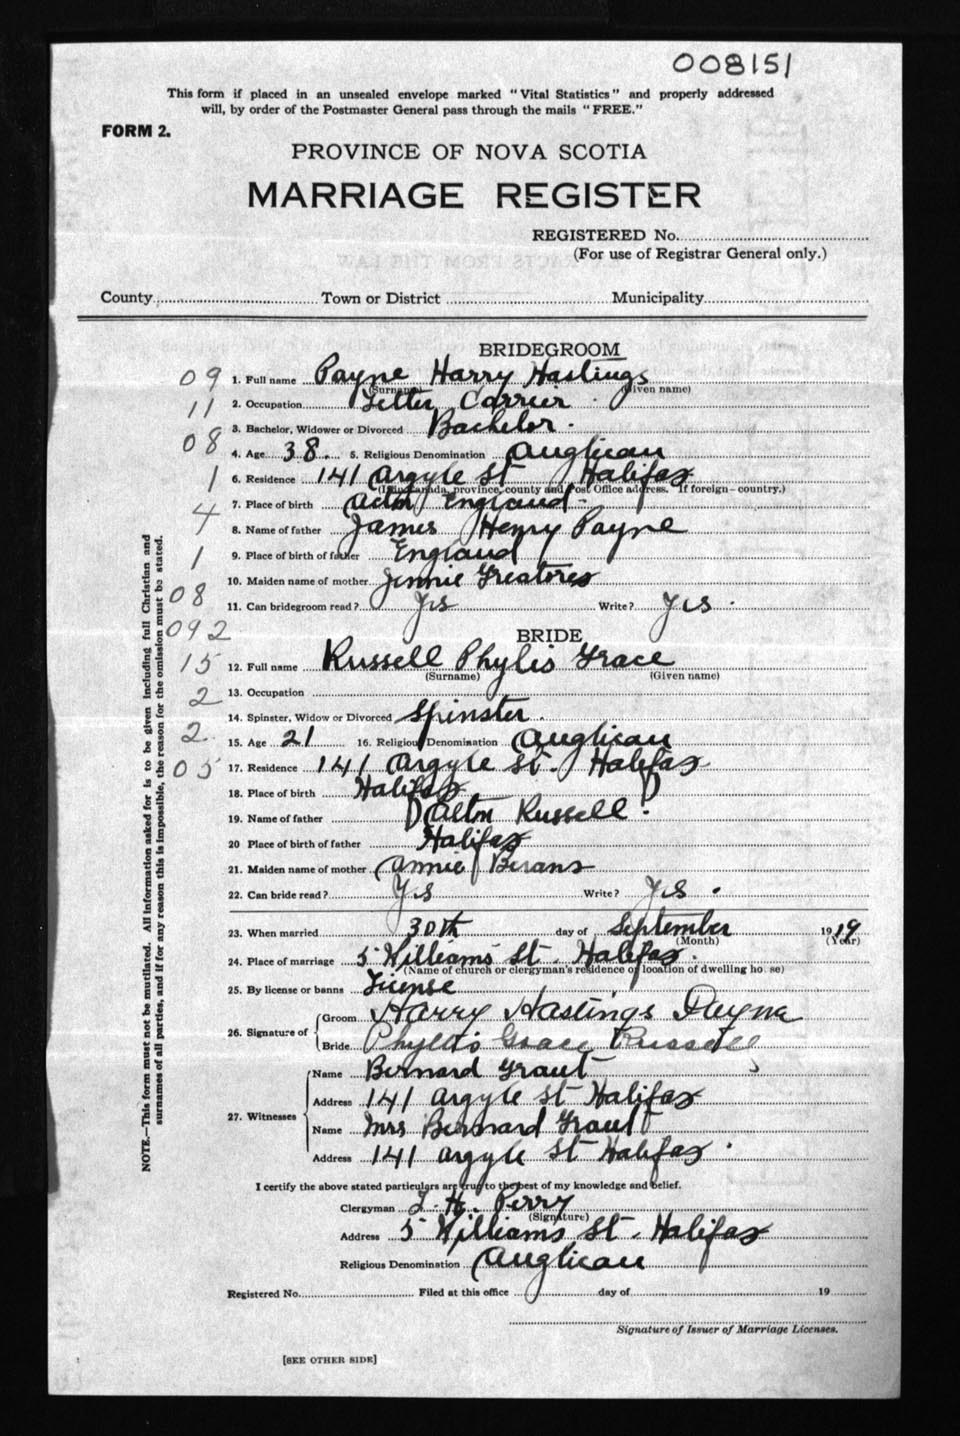 008151
This form if placed in an unsealed envelope marked "Vital Statistics" and properly addressed
will, by order of the Postmaster General pass through the mails "FREE."
FORM 2.
PROVINCE OF NOVA SCOTIA
MARRIAGE REGISTER
REGISTERED No.
(For use of Registrar General only.)
County Town or District Municipality
BRIDEGROOM
09 1. Full name Payne Harry Hastings
(Surname) (Given name)
11 2. Occupation Letter Carrier
3. Bachelor, Widower or Divorced Bachelor.
08 4. Age 38. 5. Religious Denomination Anglican
1 6. Residence 141 Argyle St Halifax
(If in Canada, province, county and Post Office address. If foreign—country.)
7. Place of birth Acton England
4 8. Name of father James Henry Payne
1 9. Place of birth of father England
10. Maiden name of mother Jennie
08 11. Can bridegroom read? Yes Write? Yes.
092 BRIDE
15 12. Full name Russell Phylis Grace
(Surname) (Given name)
2 13. Occupation
14. Spinster, Widow or Divorced Spinster.
2 15. Age 21 16. Religious Denomination Anglican
05 17. Residence 141 Argyle St. Halifax
18. Place of birth Halifax
19. Name of father Dalton Russell.
20 Place of birth of father Halifax
21. Maiden name of mother Annie
22. Can bride read? Yes Write? Yes.
23. When married 30th day of September 1919
(Month) (Year)
24. Place of marriage 5 Williams St. Halifax.
(Name of church or clergyman's residence of location of dwelling house)
25. By license or banns License
26. Signature of Groom Harry Hastings Payne
Bride Phyllis Grace Russell
27. Witnesses Name Bernard Grant
Address 141 Argyle St Halifax
Name Mrs Bernard Grant
Address 141 Argyle St Halifax.
I certify the above stated particulars are true to the best of my knowledge and belief.
Clergyman H. Perry
(Signature)
Address 5 Williams St. Halifax
Religious Denomination Anglican
Registered No. Filed at this office day of 19
Signature of Issuer of Marriage Licenses.
[SEE OTHER SIDE]
NOTE.—This form must not be mutilated. All information asked for is to be given including full Christian and
surnames of all parties, and if for any reason this is impossible, the reason for the omission must be stated.